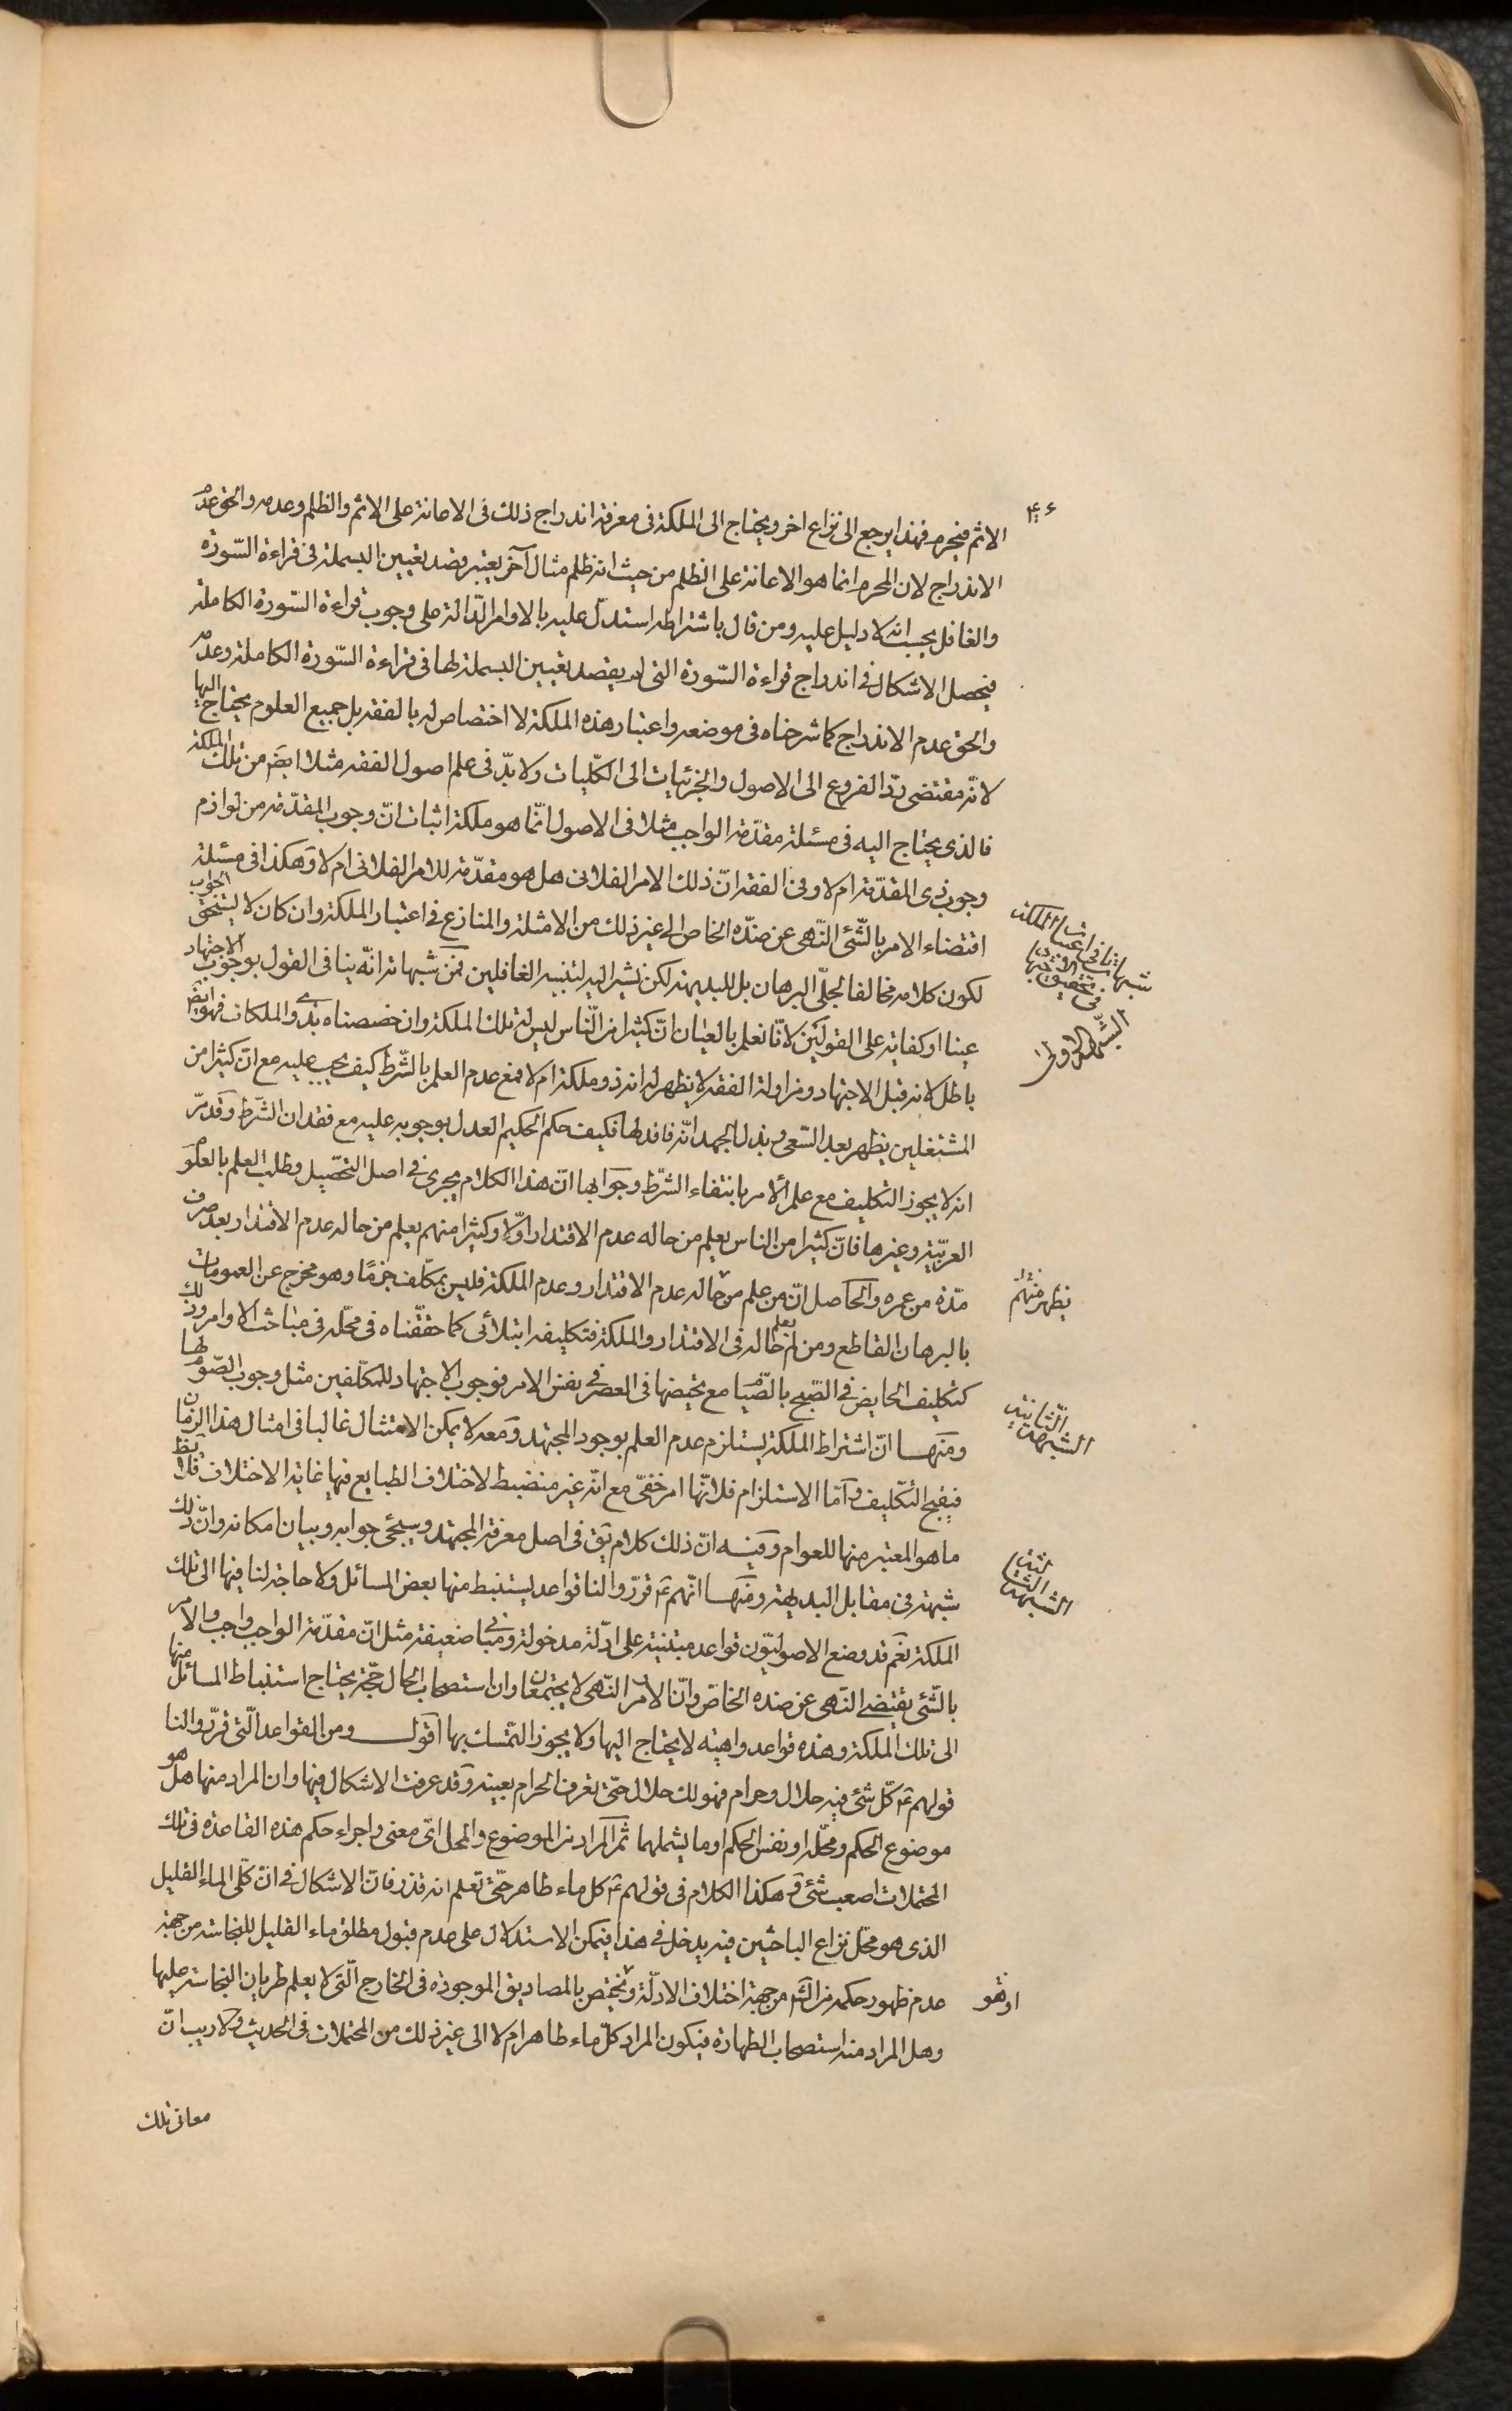 الاثم فيحرم فهذا يرجع الى نزاع اخر ويحتاج الى الملكة فى معرفة اندراج ذلك فى الاعانة على الاثم والظلم وعدمه والحق عدم
الاندراج لان المحرم انما هو الاعانة على الظلم من حيث انه ظلم مثال آخر يعتبر قصد تعيين البسملة فى قراءة السّورة
والغافل يحسب انه لا دليل عليه ومن قال باشتراطه استدلّ عليه بالاوامر الدّالة على وجوب قراءة السّورة الكاملة
فيحصل الاشكال فى اندراج قراءة السّورة التى لم يقصد تعيين البسملة لها فى قراءة السّورة الكاملة وعدمه
والحق عدم الاندراج كما شرحناه فى موضعه واعتبار هذه الملكة لا اختصاص له بالفقه بل جميع العلوم يحتاج اليها
لانّه مقتضى ردّ الفروع الى الاصول والجزئيات الى الكلّيات ولا بدّ فى علم اصول الفقه مثلا ايضا من تلك الملكة
فالذى يحتاج اليه فى مسئلة مقدّمة الواجب مثلا فى الاصول انّما هو ملكة اثبات انّ وجوب المقدّمة من لوازم
وجوب ذى المقدّمة ام لا وفى الفقه انّ ذلك الامر الفلانى هل هو مقدّمة للامر الفلانى ام لا وهكذا فى مسئلة
اقتضاء الامر بالشّئ النّهى عن ضدّه الخاص الى غير ذلك من الامثلة والمنازع فى اعتبار الملكة وان كان لا يستحق الجواب
لكون كلامه مخالفا لجلّى البرهان بل للبديهة لكن نشير اليه لتنبيه الغافلين فمن شبهاته انّه ينافى القول بوجوب الاجتهاد
عينا او كفاية على القولين لانّا نعلم بالعيان انّ كثيرا من النّاس ليس له تلك الملكة وان خصصناه بذوى الملكات فهو ايضا
باطل لانه قبل الاجتهاد ومزاولة الفقه لا يظهر له انه ذو ملكة ام لا فمع عدم العلم بالشّرط كيف يجب عليه مع انّ كثيرا من
المشتغلين يظهر بعد السّعى وبذل الجهد انّه فاقد لها فكيف حكم الحكيم العدل بوجوبه عليه مع فقدان الشرط وقد مرّ
انه لا يجوز التكليف مع علم الامر بانتفاء الشّرط وجوابها انّ هذا الكلام يجرى فى اصل التحصيل وطلب العلم بالعلوم
العربيّة وغيرها فانّ كثيرا من الناس يعلم من حاله عدم الاقتدار اوّلا وكثيرا منهم يعلم من حاله عدم الاقتدار بعد صرف
مدّة من عمره والحاصل انّ من علم من حاله عدم الاقتدار وعدم الملكة فليس بمكلّف جزمًا وهو مخرج عن العمومات
بالبرهان القاطع ومن لم يعلم حاله فى الاقتدار والملكة فتكليفه ابتلائى كما حقّقناه فى محلّه فى مباحث الاوامر وذلك
كتكليف الحايض فى الصّبح بالصّيام مع تحيضها فى العصر فى نفس الامر فوجوب الاجتهاد للمكلّفين مثل وجوب الصّوم لها
ومنها انّ اشتراط الملكة يستلزم عدم العلم بوجود المجتهد ومعه لا يمكن الامتثال غالبا فى امثال هذا الزمان
فيقبح التكليف وامّا الاستلزام فلانّها امر خفىّ مع انّه غير منضبط لاختلاف الطبايع فيها غاية الاختلاف فلا يظهر
ما هو المعتبر منها للعوام وفيه انّ ذلك كلام يق فى اصل معرفة المجتهد وسيجئ جوابه وبيان امكانه وانّ ذلك
شبهة فى مقابل البديهة ومنها انّهم ع قرّروا لنا قواعد يستنبط منها بعض المسائل ولا حاجة لنا فيها الى تلك
الملكة نعم قد وضع الاصوليّون قواعد مبتنية على ادلّة مدخولة ومبانى ضعيفة مثل انّ مقدّمة الواجب واجب والامر
بالشّئ يقتضى النهى عن ضده الخاصّ وانّ الامر والنّهى لا يجتمعان وان استصحاب الحال حجّة يحتاج استنباط المسائل منها
الى تلك الملكة وهذه قواعد واهية لا يحتاج اليها ولا يجوز التّمسك بها اقول ومن القواعد الّتى قرّروا لنا
قولهم ع كلّ شئ فيه حلال وحرام فهو لك حلال حتّى تعرف الحرام بعينه وقد عرفت الاشكال فيها وان المراد منها هل هو
موضوع الحكم ومحلّه او نفس الحكم او ما يشملهما ثم المراد من الموضوع والمحل اىّ معنى واجراء حكم هذه القاعدة فى تلك
المحتملات اصعب شئ وهكذا الكلام فى قولهم ع كل ماء طاهر حتّى تعلم انه قذر فانّ الاشكال فى انّ كلّى الماء القليل
الذى هو محلّ نزاع الباحثين فيه يدخل فى هذا فيمكن الاستدلال على عدم قبول مطلق ماء القليل للنجاسة من جهة
عدم ظهور حكمه من الشّرع من جهة اختلاف الادلّة ويختص بالمصاديق الموجودة فى الخارج الّتى لا يعلم طريان النجاسة عليها
وهل المراد منه استصحاب الطهارة فيكون المراد كلّ ماء طاهر ام لا الى غير ذلك من المحتملات فى الحديث ولا ريب انّ
معانى تلك
الشبهة الاولى
يظهر منهم
الشبهة الثانية
الشبهة الثالثة
او هو